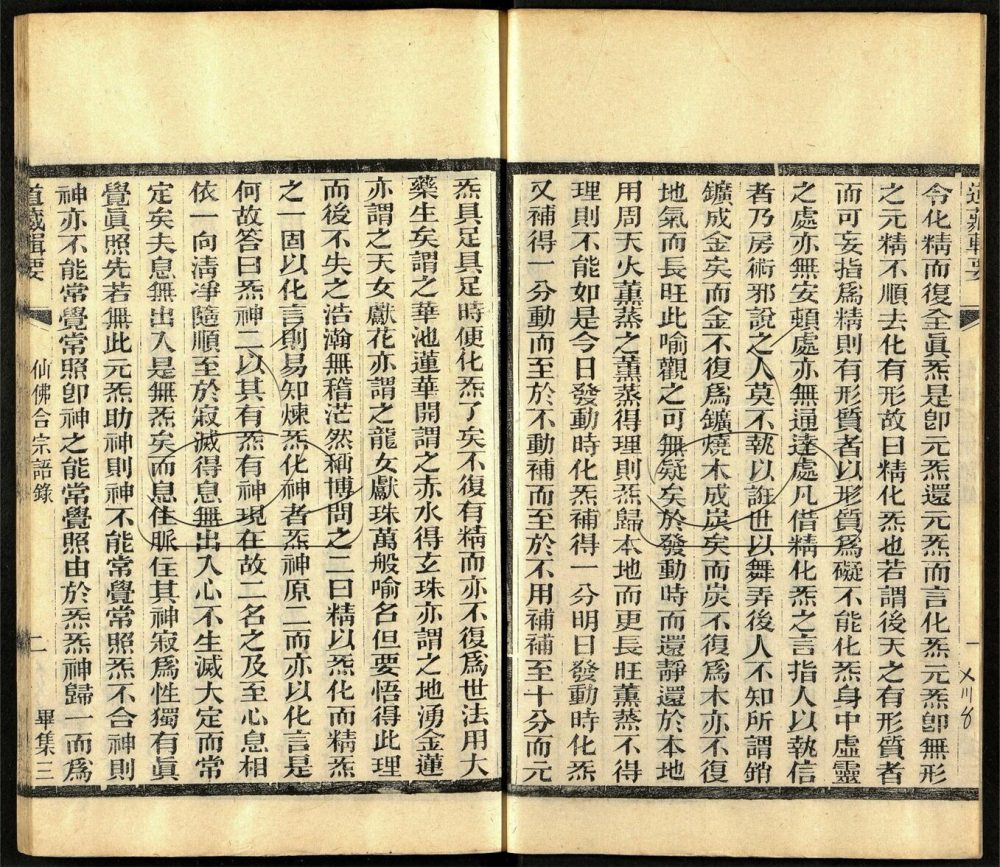 道藏輯要
一
令化精而復全眞炁是卽元炁還元炁而言化炁元炁卽無形
之元精不順去化有形故曰精化炁也若謂後天之有形質者
而可妄指爲精則有形質者以形質爲礙不能化炁身中虛靈
之處亦無安頓處亦無通達處凡借精化炁之言指人以執信
者乃房術邪說之人莫不執以誑世以舞弄後人不知所謂銷
鑛成金矣而金不復爲鑛燒木成炭矣而炭不復爲木亦不復
地氣而長旺此喻觀之可無疑矣於發動時而還靜還於本地
用周天火薰蒸之薰蒸得理則炁歸本地而更長旺薰蒸不得
理則不能如是今日發動時化炁補得一分明日發動時化炁
又補得一分動而至於不動補而至於不用補補至十分而元
炁具足具足時便化炁了矣不復有精而亦不復爲世法用大
藥生矣謂之華池蓮華開謂之赤水得玄珠亦謂之地湧金蓮
亦謂之天女獻花亦謂之龍女獻珠萬般喻名但要悟得此理
而後不失之浩瀚無稽茫然稱博問之二曰精以炁化而精炁
之一固以化言則易知煉炁化神者炁神原二而亦以化言是
何故答曰炁神二以其有炁有神現在故二名之及至心息相
依一向清凈隨順至於寂滅得息無出入心不生滅大定而常
定矣夫息無出入是無炁矣而息住脈住其神寂爲性獨有眞
覺眞照先若無此元炁助神則神不能常覺常照炁不合神則
神亦不能常覺常照卽神之能常覺照由於炁炁神歸一而爲
道藏輯要
仙佛合宗語錄
二
畢集三